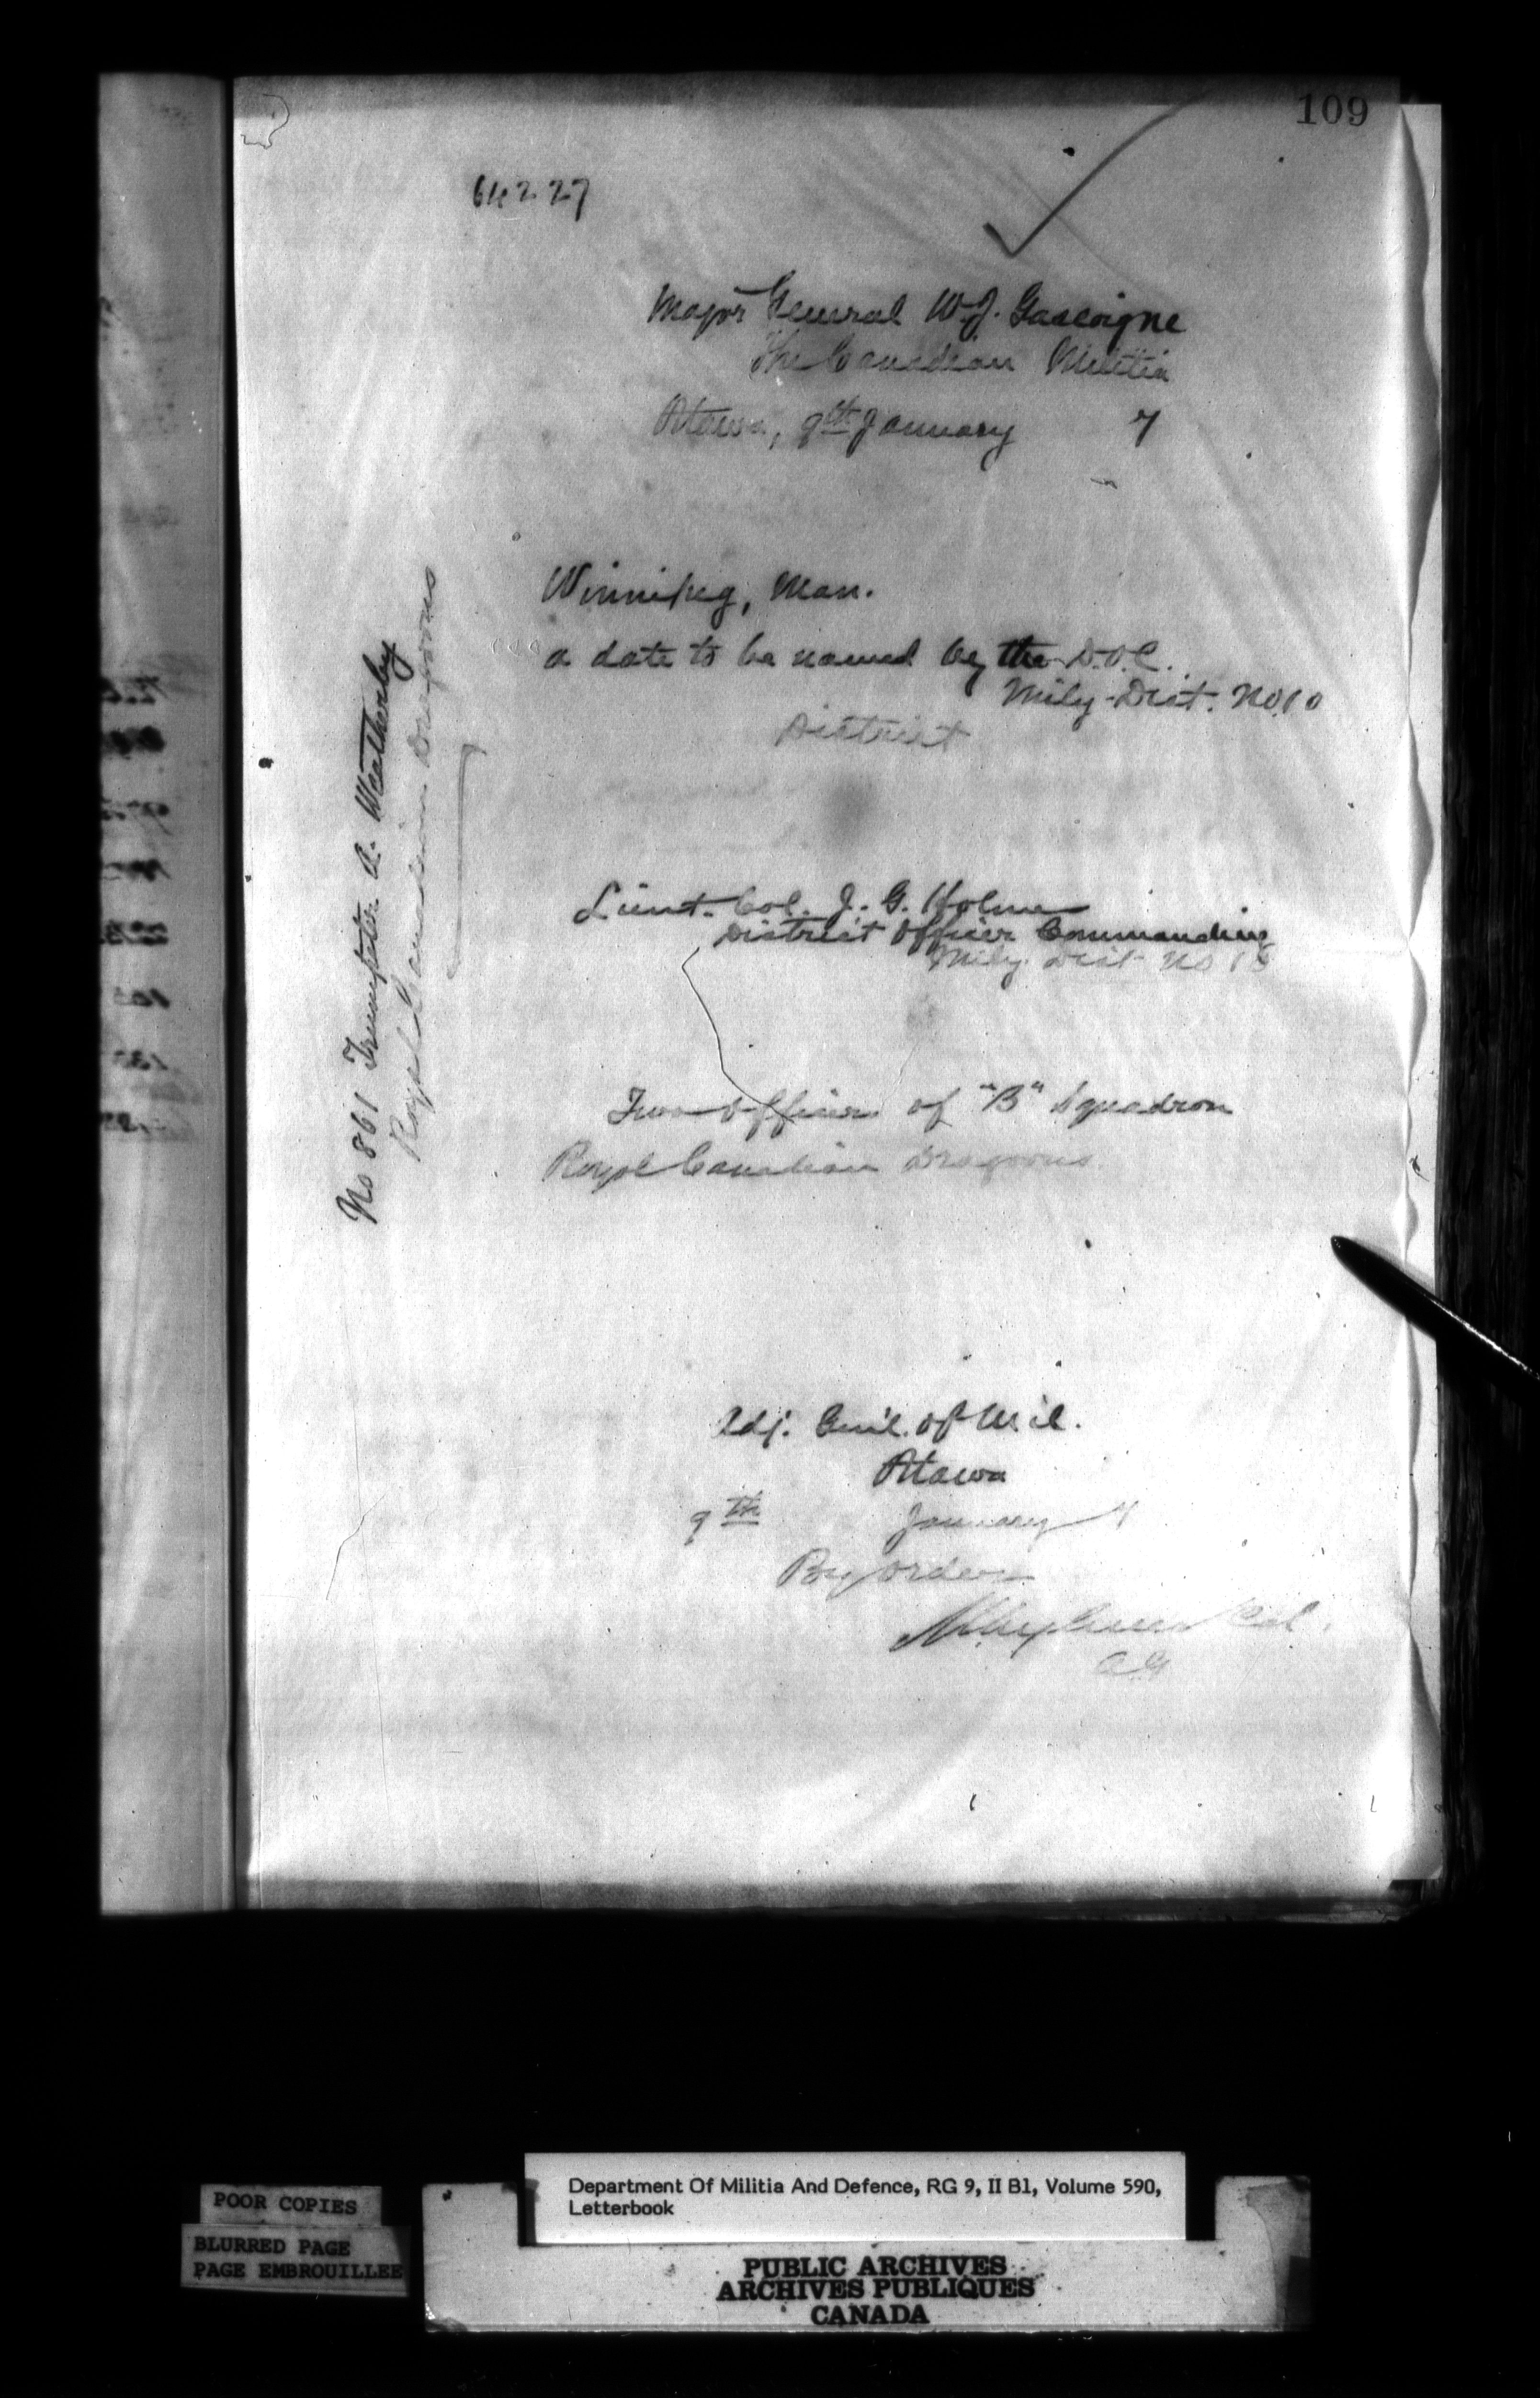 109
64227
Major General W.J. Gascoigne
The Canadian Militia
Ottawa, 9th January 7
Winnipeg, Man.
a date to be named by the D.O.C.
Mily. Dist. No. 10
District
No 861 Trumpeter A. Weatherby
Royal Canadian Dragoons
Lieut. Col. J. G. Holmes
District Officer Commanding
Mily. Dist. No 10
Two Officers of "B" Squadron
Royal Canadian Dragoons
Adj. Gen'l. of Mil.
Ottawa
9th January 7
By order
Col.
A G
Department Of Militia And Defence, RG 9, II B1, Volume 590,
Letterbook
POOR COPIES
BLURRED PAGE
PAGE EMBROUILLEE
PUBLIC ARCHIVES
ARCHIVES PUBLIQUES
CANADA